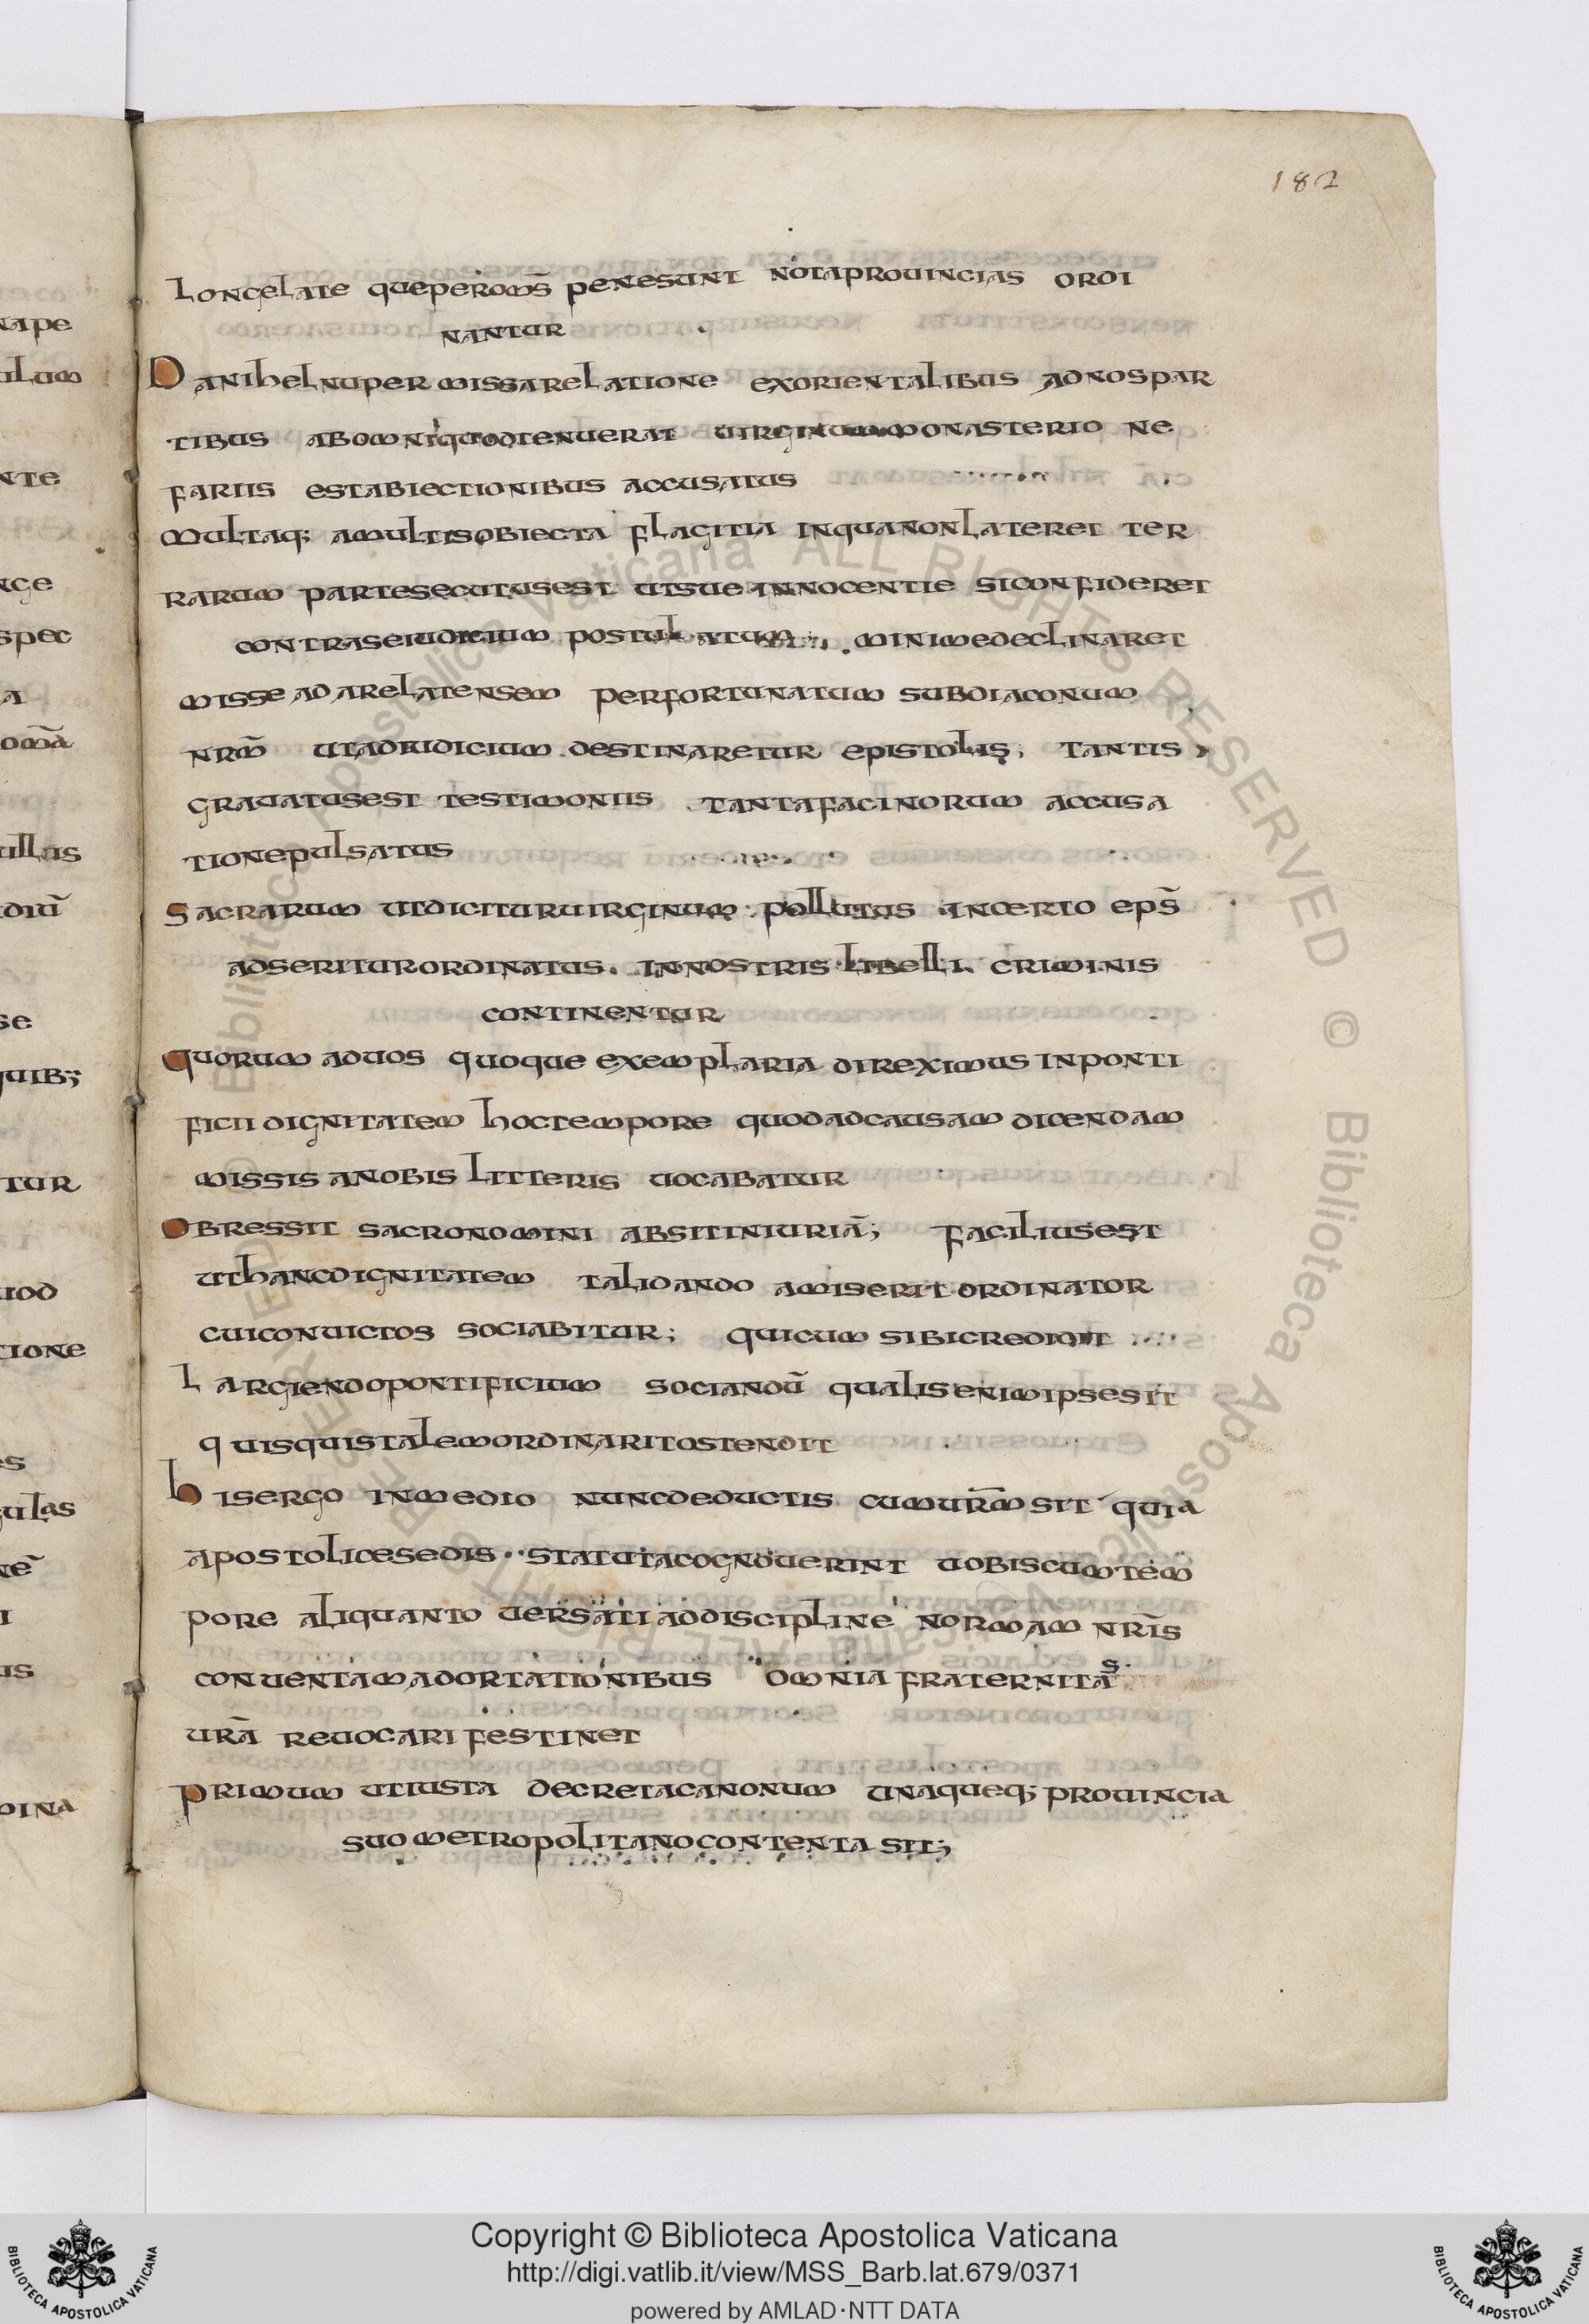 182
longelate queperoms̄ penesunt notaprouincias ordi
nantur
Danihelnuper missarelatione exorientalibus adnospar
tibus abomniquodtenuerat uirginummonasterio ne
fariis estabiectionibus accusatus
multaq; amultisobiecta flagitia inquanonlateret ter
rarum partesecutusest utsue innocentie siconfideret
contraseiudicium postulatum minimedeclinaret
misse adarelatensem perfortunatum subdiaconum
nrm̄ utadiudicium destinaretur epistolis, tantis
grauatusest testimoniis tantafacinorum accusa
tionepulsatus
Sacrarum utdicituruirginum pollutus incerto eps̄
adseriturordinatus. innostris libelli criminis
continentur
Quorum aduos quoque exemplaria direximus inponti
ficii dignitatem hoctempore quodadcausam dicendam
missis anobis litteris uocabatur
Obressit sacronomini absitiniuriā; faciliusest
uthancdignitatem talidando amiserit ordinator
cuiconuictos sociabitur; quicum sibicredidit
Largiendopontificium sociandū qualisenimipsesit
quisquistalemordinaritostendit
hisergo inmedio nuncdeductis cumurm̄sit quia
apostolicesedis statutacognouerint uobiscumtem
pore aliquanto uersatiaddiscipline normam nrīs
conuentamadortationibus omnia fraternitas
urā reuocari festinet
Primum utiusta decretacanonum unaqueq; prouincia
suometropolitanocontenta sit;
nape
ulum
nte
nge
spec
a
omā
ullus
diū
se
quib;
tur
uod
tione
es
gulas
nē
i
us
dina
Copyright © Biblioteca Apostolica Vaticana
http://digi.vatlib.it/view/MSS_Barb.lat.679/0371
powered by AMLAD·NTT DATA
BIBLIOTECA APOSTOLICA VATICANA
BIBLIOTECA APOSTOLICA VATICANA